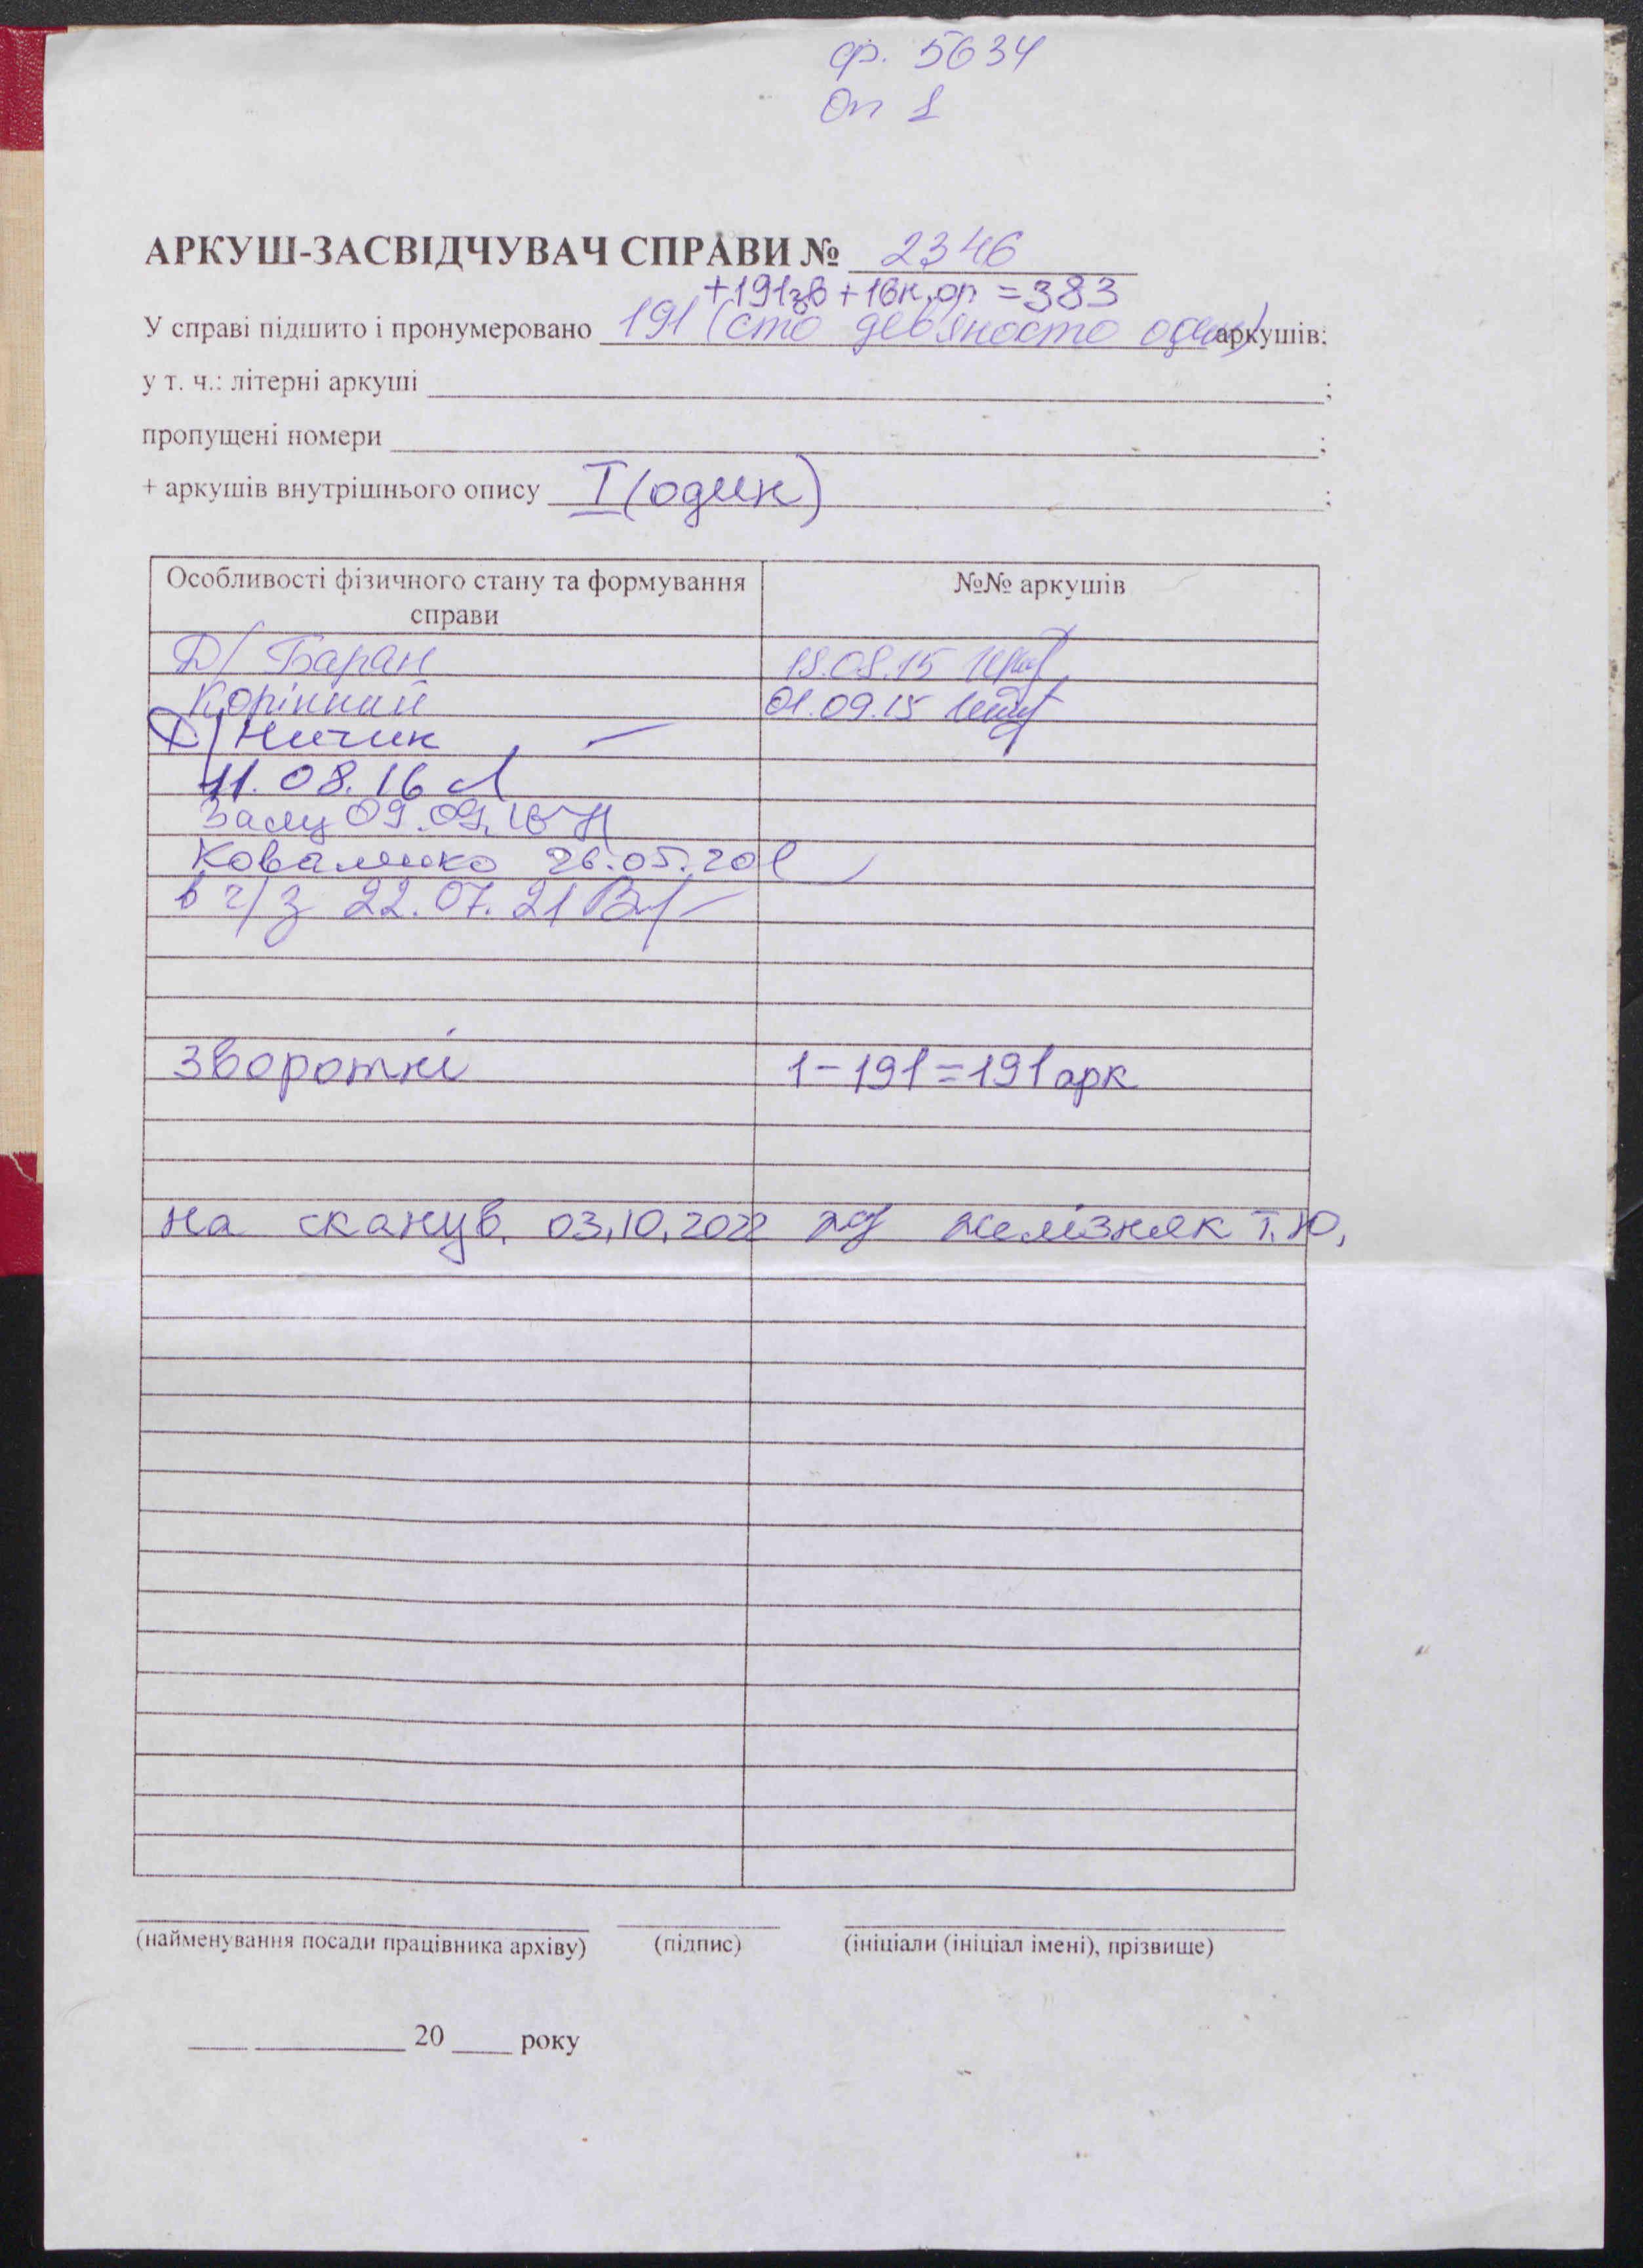 ф. 5634
Оп 1
АРКУШ-ЗАСВІДЧУВАЧ СПРАВИ № 2346
+191зв +1вн.оп =383
У справі підшито і пронумеровано 191 (сто дев'яносто один) аркушів;
у т. ч.: літерні аркуші ;
пропущені номери ;
+ аркушів внутрішнього опису I (один) ;
Особливості фізичного стану та формування справи
№№ аркушів
Д/ Баран 18.08.15
Корінний 01.09.15
Д/ Ничик
11.08.16
Залу 09.09.16
Коваленко 26.05.20
в ч/з 22.07.21
зворотні 1-191=191арк
на сканув. 03.10.2022 Желізняк Т.Ю.
(найменування посади працівника архіву) (підпис) (ініціали (ініціал імені), прізвище)
20 року